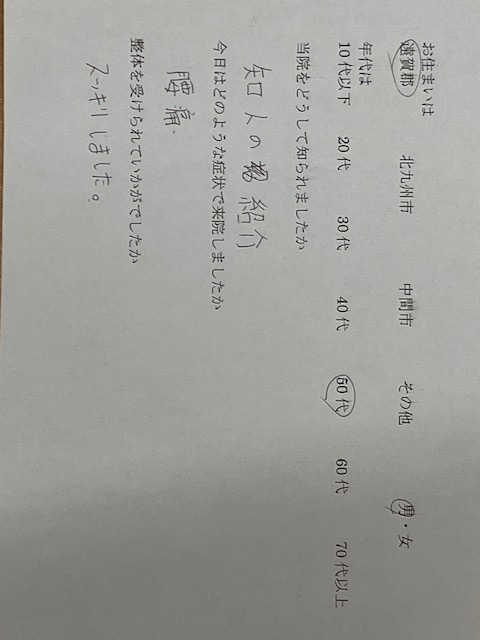 お住まいは
遠賀郡 北九州市 中間市 その他 男・女
年代は
10代以下 20代 30代 40代 50代 60代 70代以上
当院をどうして知られましたか
知人の紹介
今日はどのような症状で来院しましたか
腰痛.
整体を受けられていかがでしたか
スッキリしました。